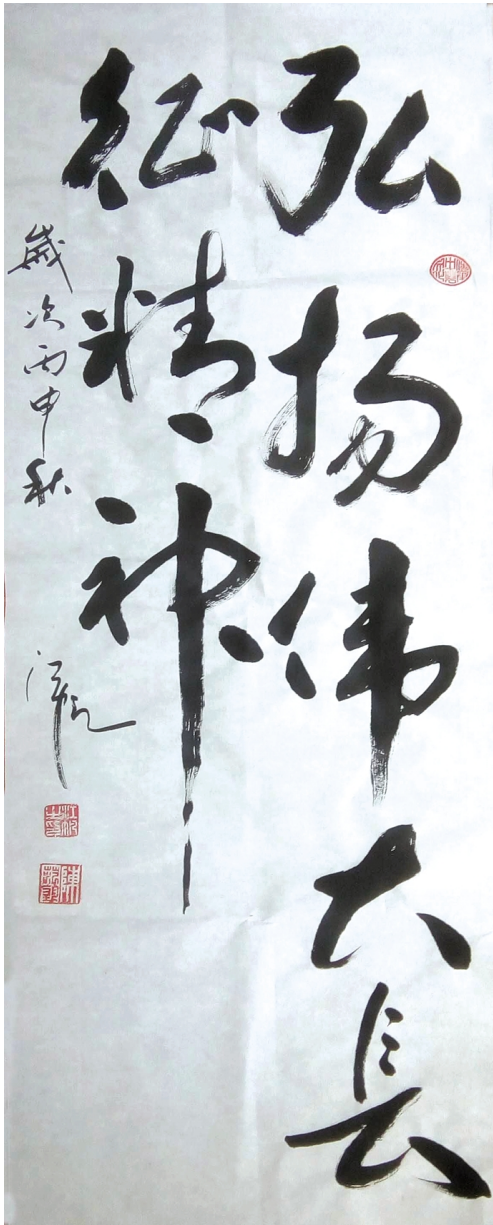 弘扬伟大长
征精神
岁次丙申秋